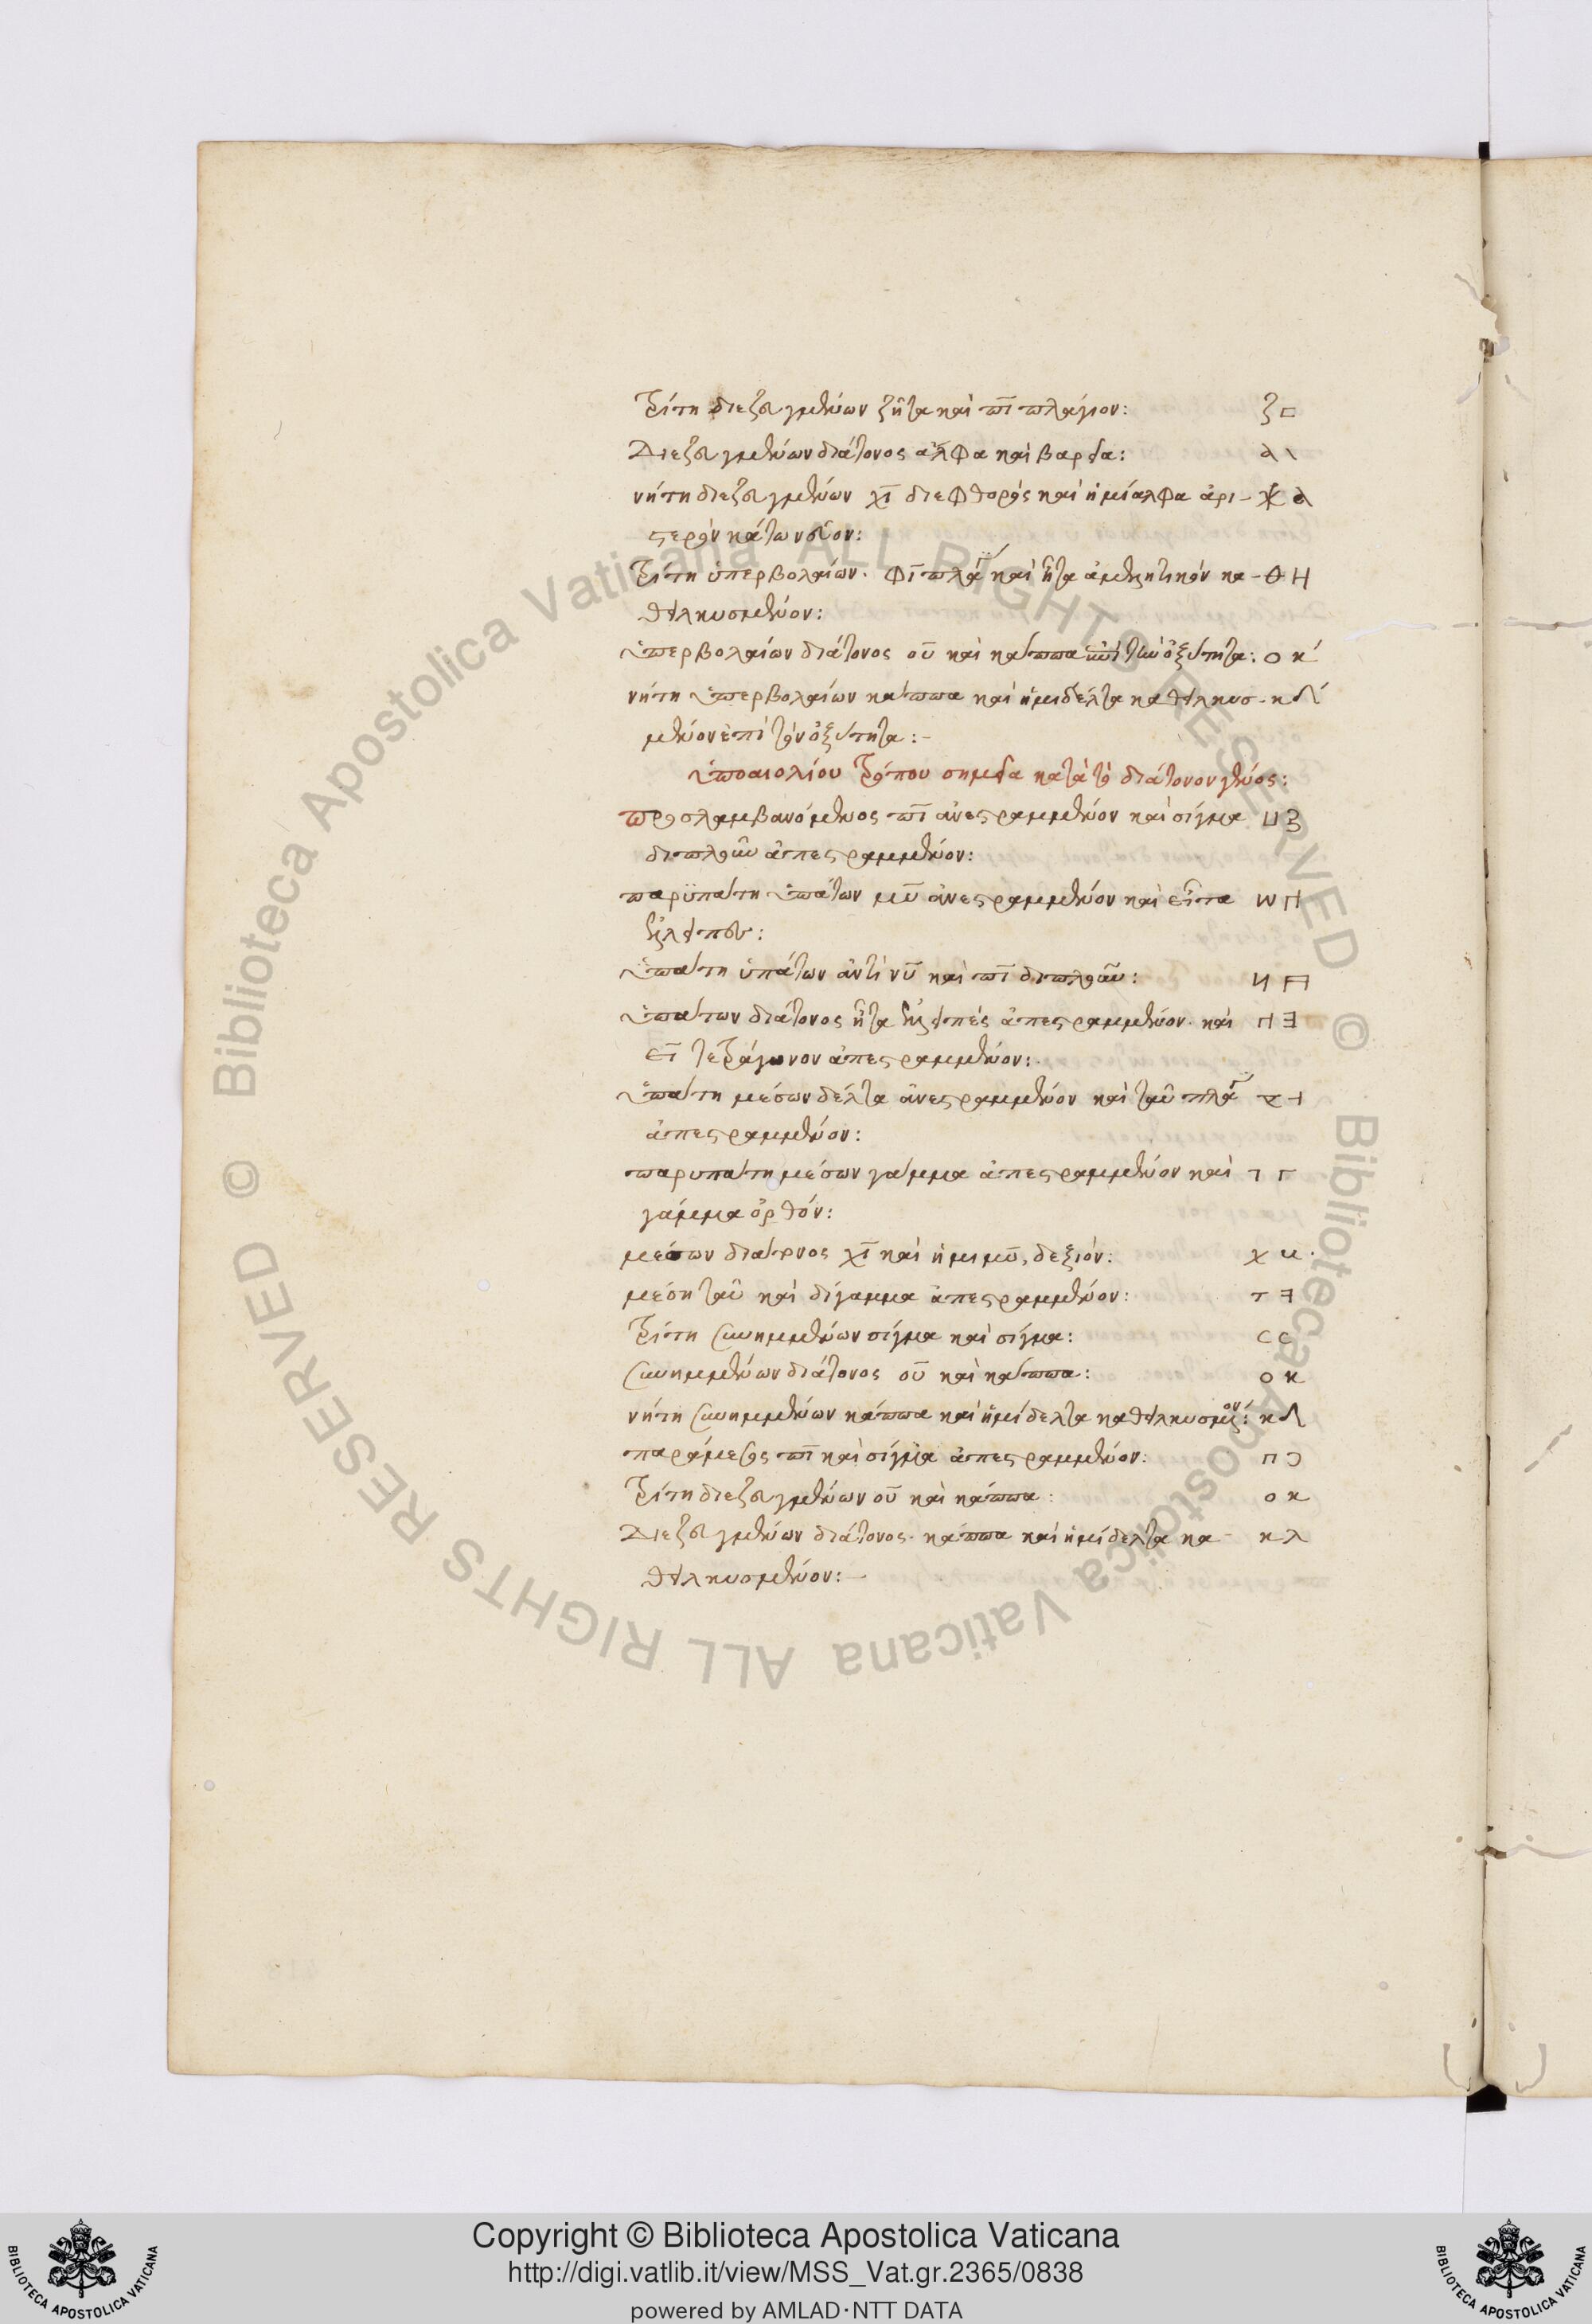 Τρίτη διεζευγμένων ζῆτα καὶ πῖ πλάγιον: ζ ⊏
Διεζευγμένων διάτονος ἄλφα καὶ βαρεῖα: λ \
νήτη διεζευγμένων χῖ διεφθορὸς καὶ ἡμίαλφα ἀρι-
στερὸν κάτω νεῦον:
Τρίτη ὑπερβολαίων. φῖ πλά καὶ ἦτα ἀμελητικὸν κα- Θ Η
θειλκυσμένον:
ὑπερβολαίων διάτονος οὖ καὶ κάππα ἐπὶ τὴν ὀξύτητα: ο κ´
νήτη ὑπερβολαίων κάππα καὶ ἡμιδέλτα καθειλκυσ-
μένον ἐπὶ τὴν ὀξύτητα:-
ὑποαιολίου τρόπου σημεῖα κατὰ τὸ διάτονον γένος:
προσλαμβανόμενος πῖ ἀνεστραμμένον καὶ σίγμα
διπλοῦν ἀπεστραμμένον:
παρϋπάτη ὑπάτων μῦ ἀνεστραμμένον καὶ εἶτα
ἐλλειπὲς:
ὑπάτη ὑπάτων ἀντίνυ καὶ πῖ διπλοῦν: И
ὑπάτων διάτονος ἦτα ἐλλειπές ἀπεστραμμένον. καὶ
εῖ τετράγωνον ἀπεστραμμένον:
ὑπάτη μέσων δέλτα ἀνεστραμμένον καὶ ταῦ πλά
ἀπεστραμμένον:
παρυπάτη μέσων γάμμα ἀπεστραμμένον καὶ ⅂ Γ
γάμμα ὀρθόν:
μέσων διάτονος χῖ καὶ ἡμιμῦ, δεξιόν: χ и.
μέση ταῦ καὶ δίγαμμα ἀπεστραμμένον: τ ꟻ
Τρίτη συνημμένων σίγμα καὶ σίγμα: C C
συνημμένων διάτονος οὖ καὶ κάππα: ο κ
νήτη συνημμένων κάππα καὶ ἡμίδελτα καθειλκυσμένον: κ
παράμεσος πῖ καὶ σίγμα ἀπεστραμμένον: π Ɔ
Τρίτη διεζευγμένων οὖ καὶ κάππα: ο κ
Διεζευγμένων διάτονος. κάππα καὶ ἡμίδελτα κα- κ λ
θειλκυσμένον:-
Copyright © Biblioteca Apostolica Vaticana
http://digi.vatlib.it/view/MSS_Vat.gr.2365/0838
powered by AMLAD·NTT DATA
BIBLIOTECA APOSTOLICA VATICANA
BIBLIOTECA APOSTOLICA VATICANA
© Biblioteca Apostolica Vaticana ALL RIGHTS RESERVED © Biblioteca Apostolica Vaticana ALL RIGHTS RESERVED